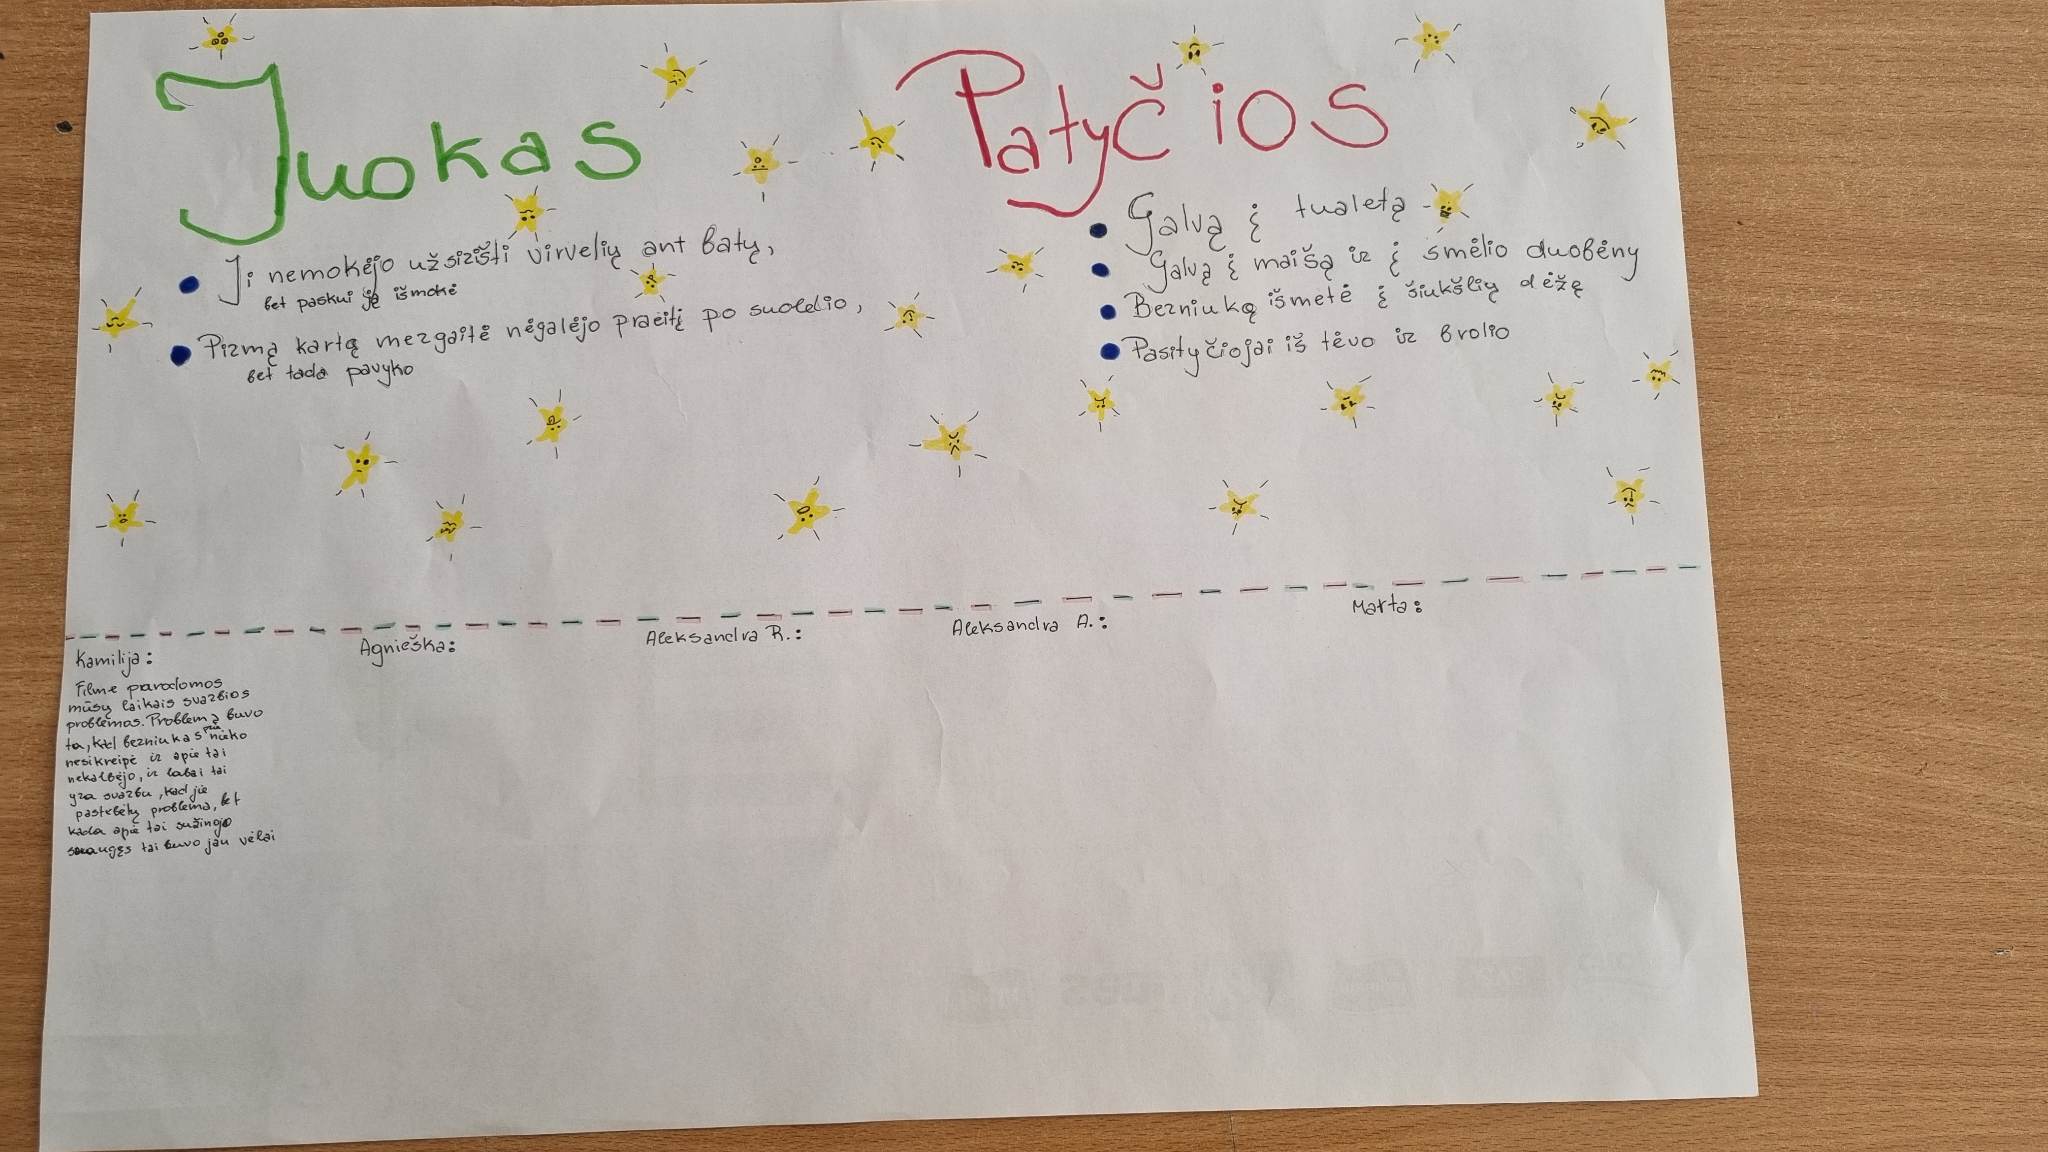 Juokas
Ji nemokėjo užsirišti virvelių ant batų,
bet paskui ją išmokė
Pirmą kartą mergaitė negalėjo praeiti po suoleliu,
bet tada pavyko
Patyčios
Galvą į tualetą
Galvą į maišą ir į smėlio duobėny
Berniuką išmetė į šiukšlių dėžę
Pasityčiojai iš tėvo ir brolio
Kamilija:
Filme parodomos
mūsų laikais svarbios
problemos. Problemą buvo
ta, kad berniukas prie nieko
nesikreipė ir apie tai
nekalbėjo, ir labai tai
yra svarbu, kad jie
pastebėtų problema, bet
kada apie tai sužinojo
suaugęs tai buvo jau vėlai
Agnieška:
Aleksandra R.:
Aleksandra A.:
Marta: